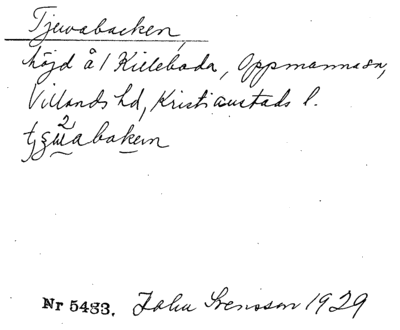 Tjuvabacken,
höjd å/ Killeboda, Oppmannasn,
Villands hd, Kristianstads l.
Nr 5433. John Svensson 1929